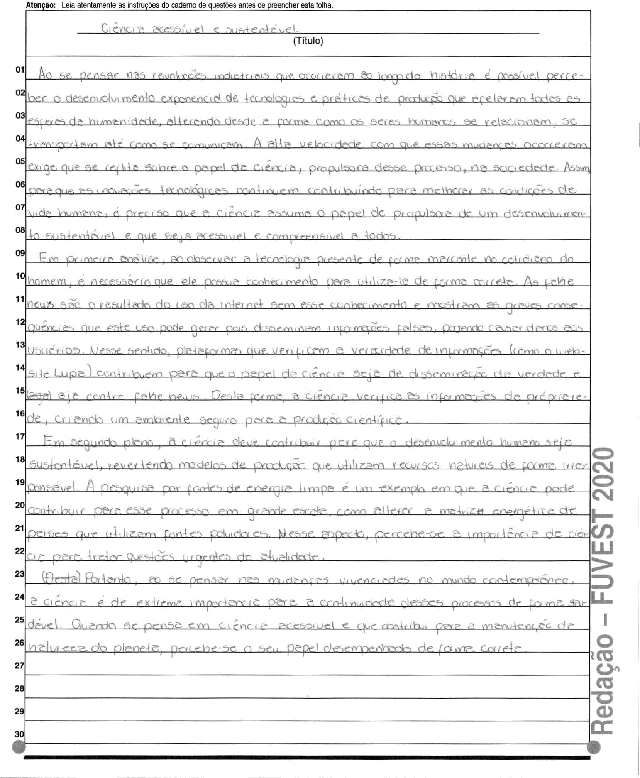 Atenção: Leia atentamente as instruções do caderno de questões antes de preencher esta folha.
Ciência acessível e sustentável
(Título)
01 Ao se pensar nas revoluções industriais que ocorreram ao longo da história é possível perce-
02 ber o desenvolvimento exponencial de tecnologias e práticas de produção que afetaram todas as
03 esferas da humanidade, alterando desde a forma como os seres humanos se relacionam, se
04 transportam até como se comunicam. A alta velocidade com que essas mudanças ocorreram
05 exige que se reflita sobre o papel da ciência, propulsora desse processo, na sociedade. Assim,
06 para que as inovações tecnológicas continuem contribuindo para melhorar as condições de
07 vida humana, é preciso que a ciência assuma o papel de propulsora de um desenvolvimen-
08 to sustentável e que seja acessível e compreensível a todos.
09 Em primeira análise, ao observar a tecnologia presente de forma marcante no cotidiano do
10 homem, é necessário que ele possua conhecimento para utilizá-la de forma correta. As fake
11 news são o resultado do uso da internet sem esse conhecimento e mostram as graves conse-
12 quências que este uso pode gerar pois disseminam informações falsas, podendo causar danos aos
13 usuários. Nesse sentido, plataformas que verificam a veracidade de informações (como o web-
14 site Lupa) contribuem para que o papel da ciência seja de disseminação da verdade e
15 aja contra fake news. Desta forma, a ciência verifica as informações da própria re-
16 de, criando um ambiente seguro para a produção científica.
17 Em segundo plano, a ciência deve contribuir para que o desenvolvimento humano seja
18 sustentável, revertendo modelos de produção que utilizam recursos naturais de forma irres-
19 ponsável. A pesquisa por fontes de energia limpa é um exemplo em que a ciência pode
20 contribuir para esse processo em grande escala, como alterar a matriz energética de
21 países que utilizam fontes poluidoras. Nesse aspecto, percebe-se a importância da ciên-
22 cia para tratar questões urgentes da atualidade.
23 (Desta) Portanto, ao se pensar nas mudanças vivenciadas no mundo contemporâneo,
24 a ciência é de extrema importância para a continuidade desses processos de forma sau-
25 dável. Quando se pensa em ciência acessível e que contribui para a manutenção da
26 natureza do planeta, percebe-se o seu papel desempenhado de forma correta.
27
28
29
30
Redação – FUVEST 2020